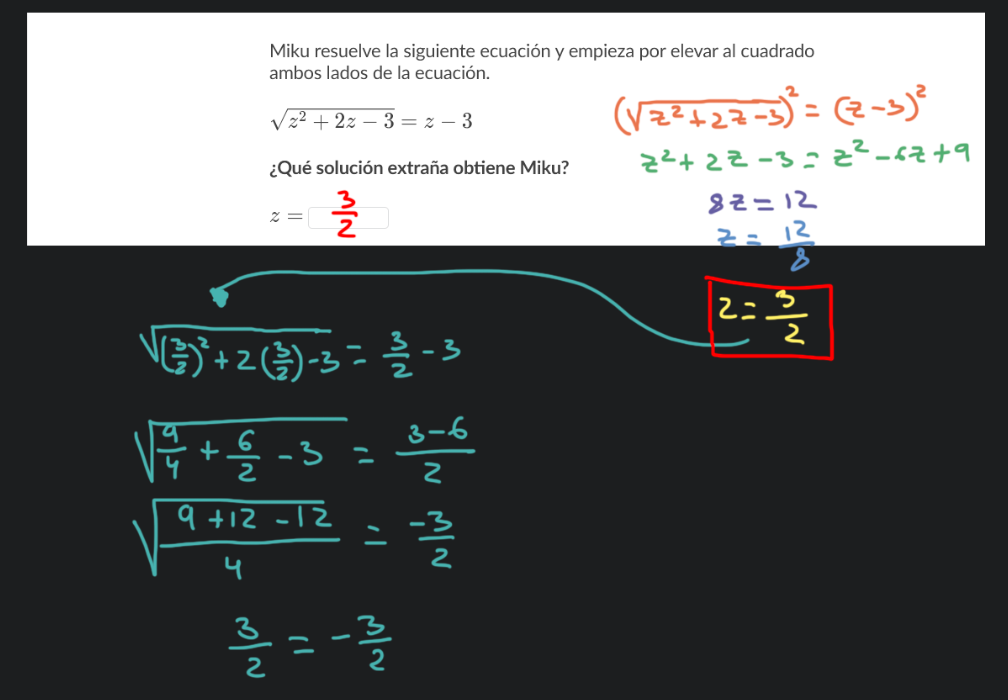 Miku resuelve la siguiente ecuación y empieza por elevar al cuadrado
ambos lados de la ecuación.
√(z² + 2z − 3) = z − 3
¿Qué solución extraña obtiene Miku?
z = 3/2
(√(z²+2z−3))² = (z−3)²
z²+2z−3 = z²−6z+9
8z = 12
z = 12/8
z = 3/2
√((3/2)²+2(3/2)−3) = 3/2 − 3
√(9/4 + 6/2 − 3) = (3−6)/2
√((9+12−12)/4) = −3/2
3/2 = −3/2